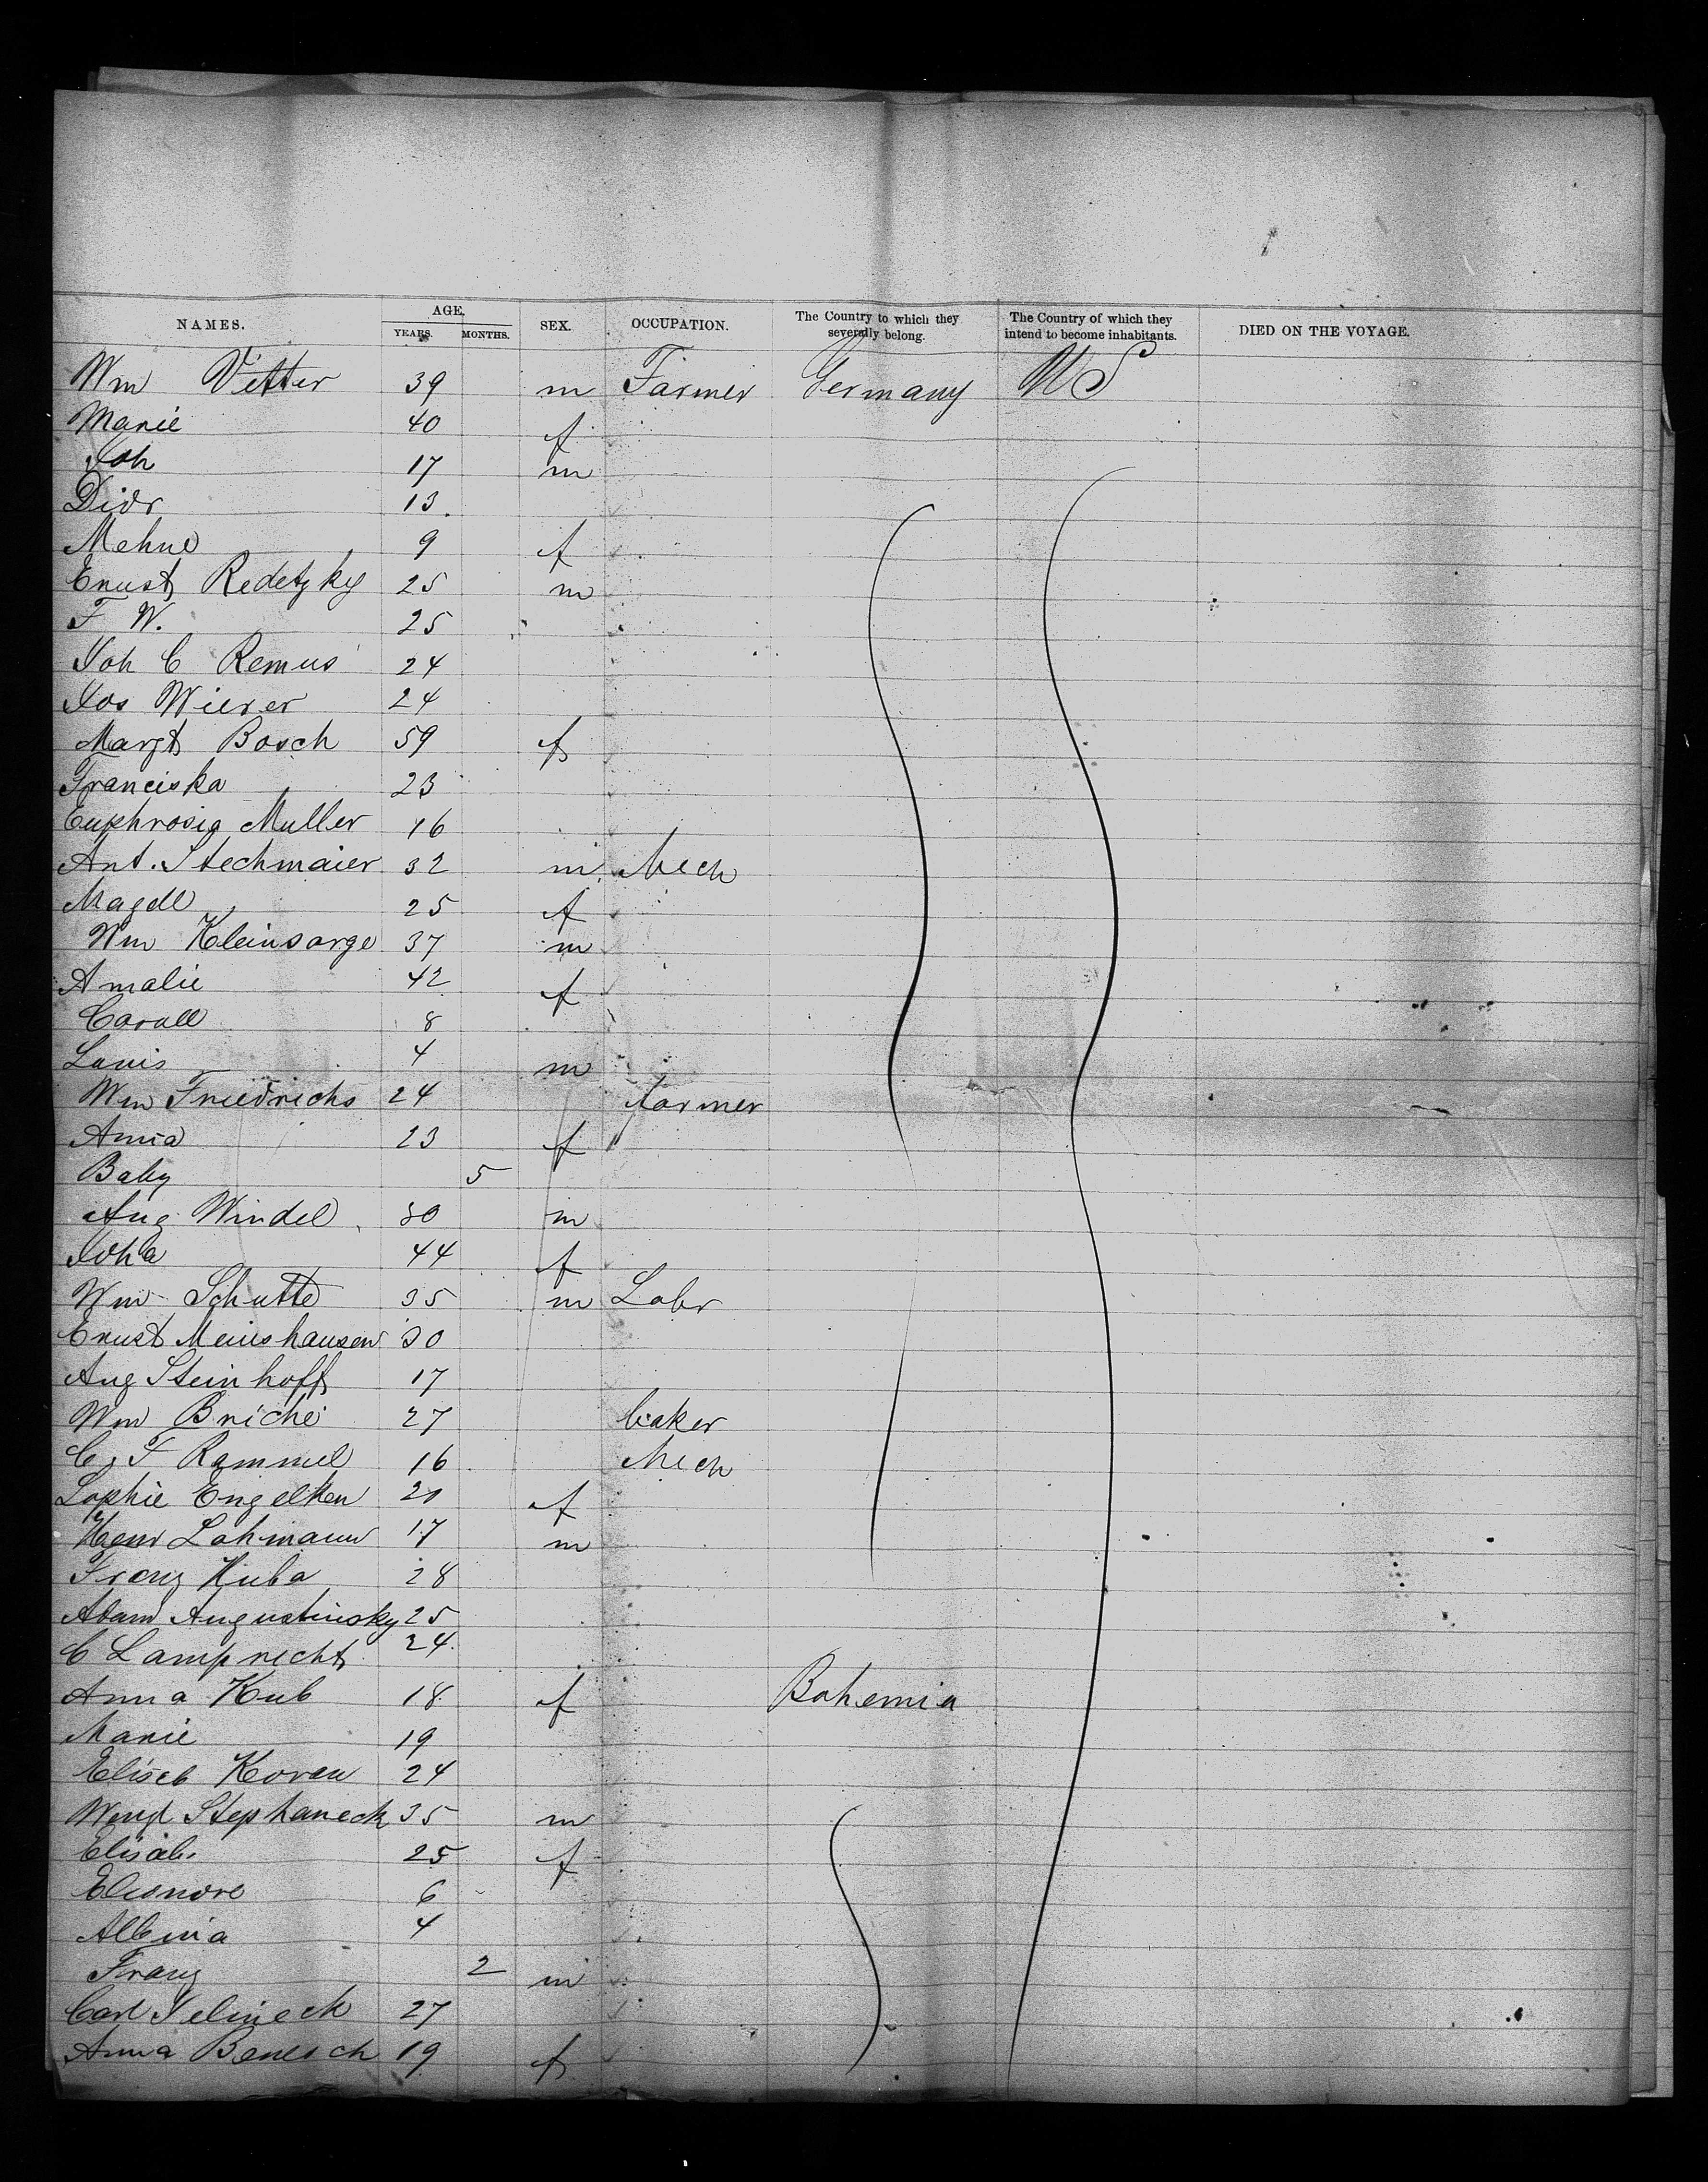 NAMES. AGE. SEX. OCCUPATION. The Country to which they severally belong. The Country of which they intend to become inhabitants. DIED ON THE VOYAGE.
YEARS. MONTHS.
Wm Vetter 39 m Farmer Germany US
Marie 40 f
Joh 17 m
Didr 13
Mehne 9 f
Ernst Redetzky 25 m
F W. 25
Joh C Remus 24
Jos Wieser 24
Margt Bosch 59 f
Franciska 23
Euphrosia Muller 16
Ant. Stechmaier 32 m Mech
Magdl 25 f
Wm Kleinsorge 37 m
Amalie 42 f
Caroll 8
Louis 4 m
Wm Friedrichs 24 farmer
Anna 23 f
Baby 5
Aug Windel 30 m
Joha 44 f
Wm Schutte 35 m Labr
Ernst Meinshausen 30
Aug Steinhoff 17
Wm Briche 27 baker
C. F Rammel 16 Mech
Sophie Engelken 20 f
Herm Lohmann 17 m
Franz Kuba 28
Adam Augustinsky 25
C Lamprecht 24
Anna Kub 18 f Bohemia
Marie 19
Eliseb Koran 24
Wenzl Stephaneck 35 m
Elisab. 25 f
Eleonore 6
Albina 4
Franz 2 m
Carl Jelineck 27
Anna Benesch 19 f